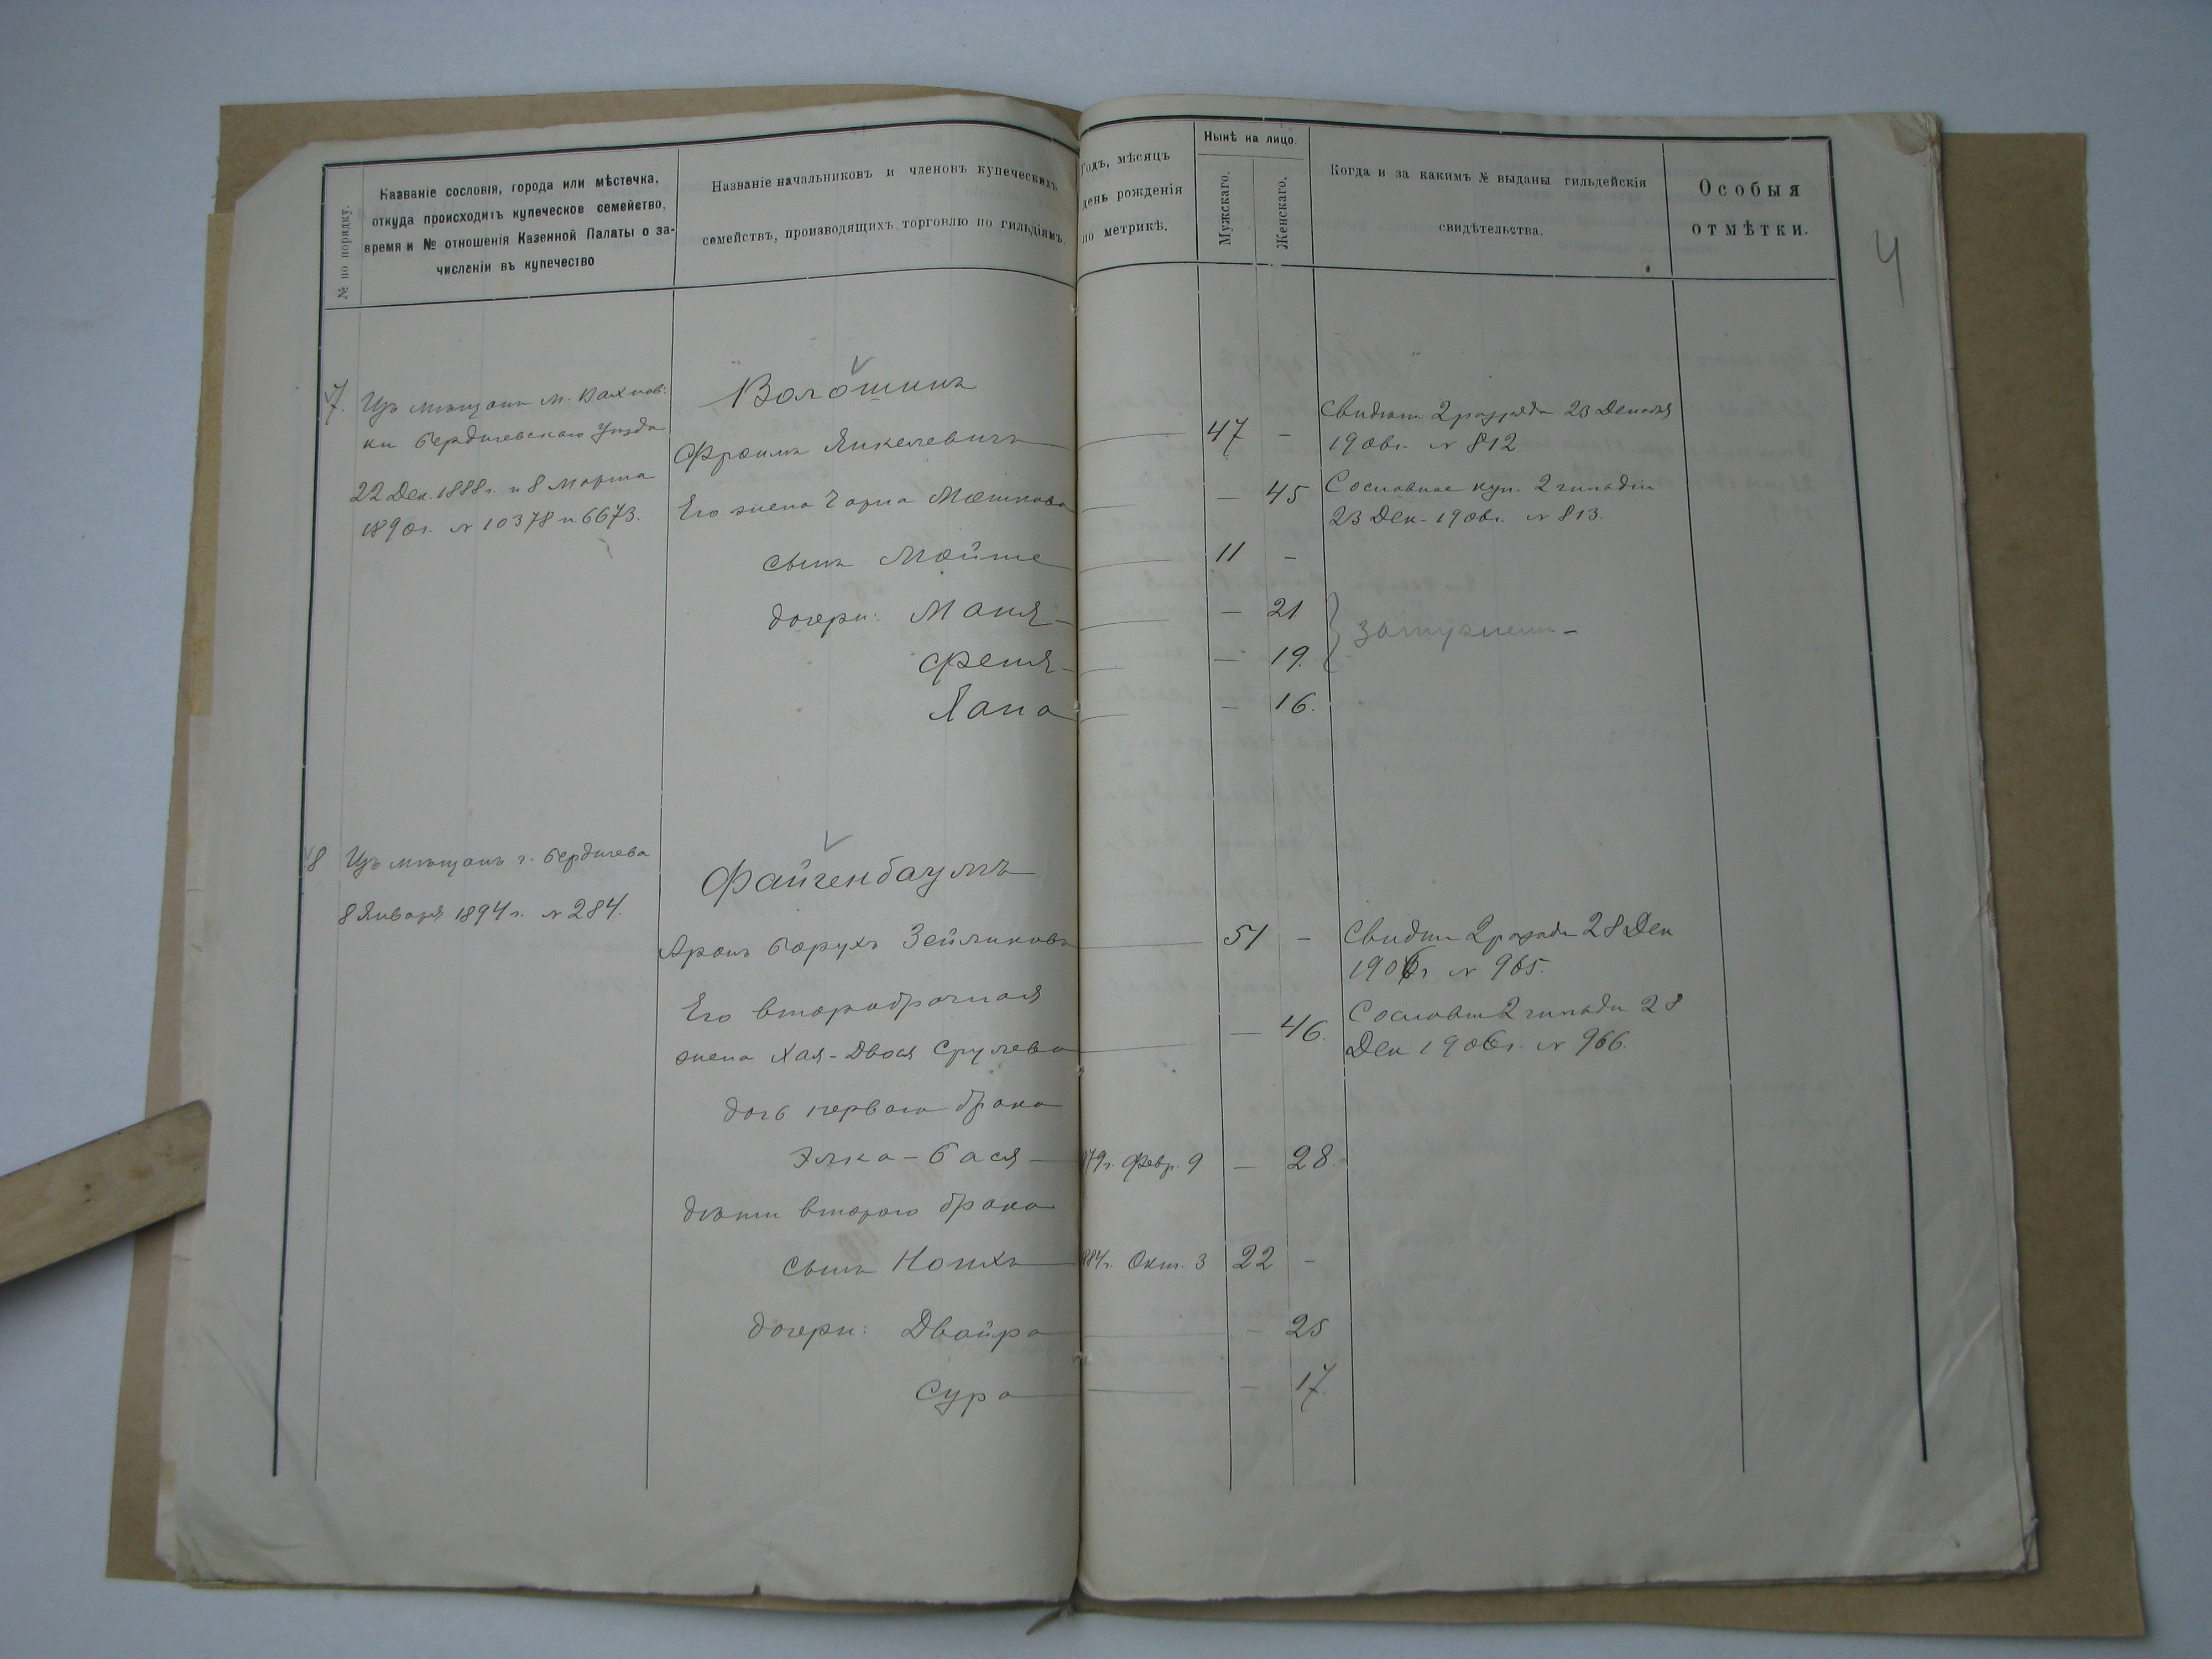 4
№ по порядку.
Названіе сословія, города или мѣстечка,
откуда происходитъ купеческое семейство,
время и № отношенія Казенной Палаты о за-
численіи въ купечество
Названіе начальниковъ и членовъ купеческихъ
семействъ, производящихъ торговлю по гильдіямъ.
Годъ, мѣсяцъ
день рожденія
по метрикѣ.
Нынѣ на лицо.
Мужскаго.
Женскаго.
Когда и за какимъ № выданы гильдейскія
свидѣтельства.
Особыя
отмѣтки.
7. Изъ мѣщанъ м. Вахнов-
ки Бердичевскаго Уѣзда
22 Дек. 1888г. и 8 Марта
1890г. № 10378 и 6673.
Волошинъ
Фроимъ Янкелевичъ 47 –
Его жена Чарна Мошкова – 45
сынъ Мойше 11 –
дочери: Маня – 21
Феня – 19.
Хана – 16.
Свидѣт. 2 разряда 23 Декабря
1906г. № 812
Сословное куп. 2 гильдіи
23 Дек. 1906г. № 813.
замужем –
8 Изъ мѣщанъ г. Бердичева
8 Января 1894г. № 284.
Файгенбаумъ
Аронъ Борухъ Зейликовъ 51 –
Его второбрачная
жена Хая-Двося Срулева – 46.
дочь перваго брака
Элка-Бася 879г. Февр. 9 – 28.
дѣти второго брака
сынъ Нотхъ 884г. Окт. 3 22 –
дочери: Двойра – 25
Сура – 17.
Свидѣт 2 разряда 28 Дек
1906г № 965.
Сословн 2 гильди 28
Дек 1906г. № 966.